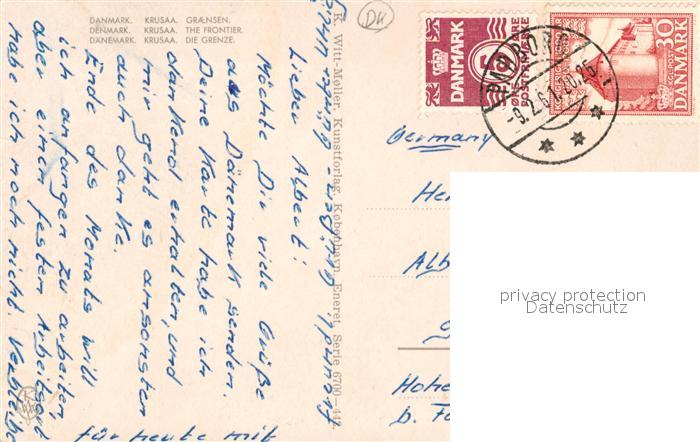 DANMARK. KRUSAA. GRÆNSEN.
DENMARK. KRUSAA. THE FRONTIER.
DÄNEMARK. KRUSAA. DIE GRENZE.
DK
K. Witt-Møller. Kunstforlag. København. Eneret. Serie 6700-442
DANMARK
30
DANMARK
Germany
Lieber Albert!
Möchte Dir viele Grüße
aus Dänemark senden.
Deine Karte habe ich
dankend erhalten, und
mir geht es ansonsten
auch danke.
Ende des Monats will
ich anfangen zu arbeiten,
aber einen festen Arbeitsort
habe ich noch nicht. Verbleibe
für heute mit
He
Alb
Hohe
b. Fo
privacy protection
Datenschutz